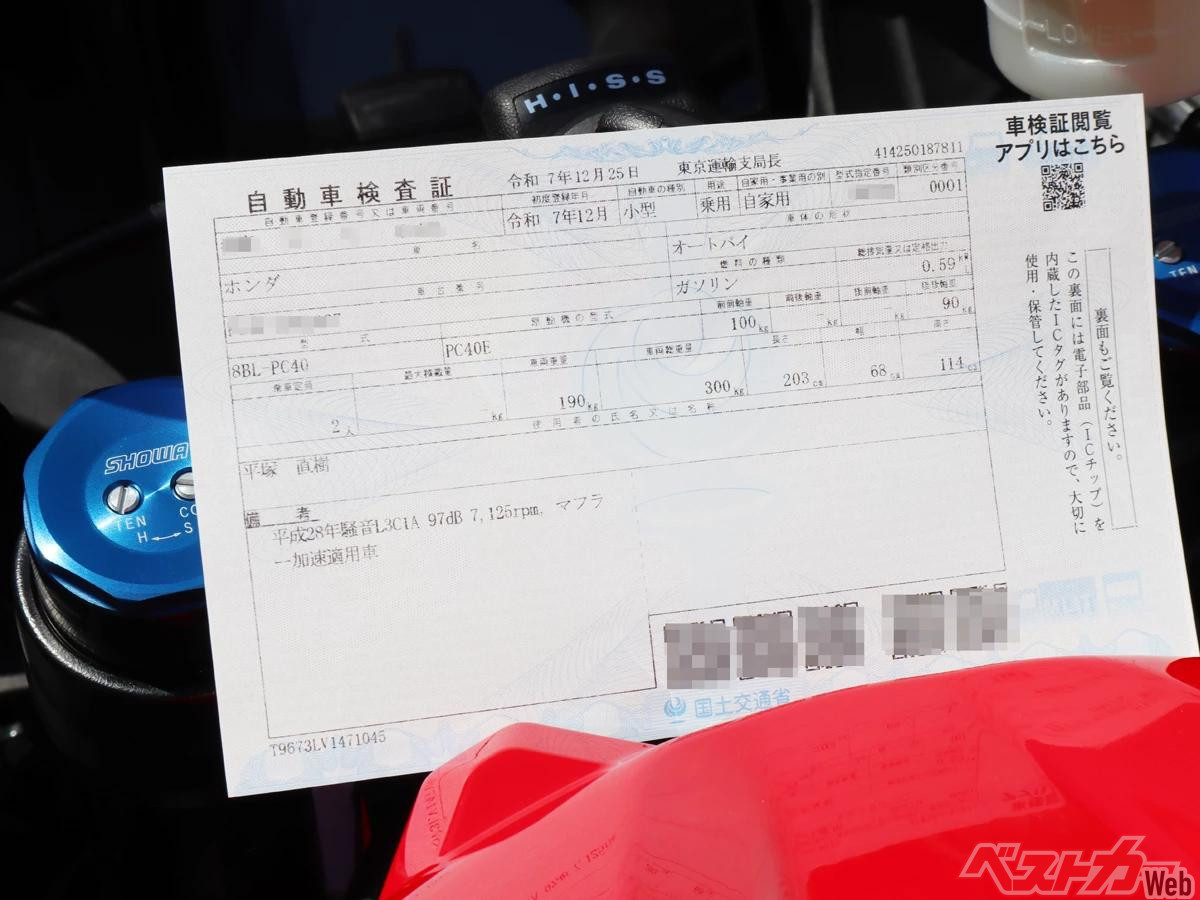 H・I・S・S
LOWER
自動車検査証
令和 7年12月25日
東京運輸支局長
414250187811
車検証閲覧
アプリはこちら
自動車登録番号又は車両番号
初度登録年月
自動車の種別
用途
自家用・事業用の別
型式指定番号
類別区分番号
令和 7年12月
小型
乗用
自家用
0001
車名
車体の形状
ホンダ
オートバイ
車台番号
燃料の種類
総排気量又は定格出力
ガソリン
0.59
型式
原動機の型式
前前軸重
前後軸重
後前軸重
後後軸重
8BL-PC40
PC40E
100kg
kg
kg
90kg
乗車定員
最大積載量
車両重量
車両総重量
長さ
幅
高さ
2人
kg
190kg
300kg
203cm
68cm
114cm
使用者の氏名又は名称
平塚 直樹
備考
平成28年騒音L3C1A 97dB 7,125rpm, マフラ
ー加速適用車
裏面もご覧ください。
この裏面には電子部品(ICチップ)を
内蔵したICタグがありますので、大切に
使用・保管してください。
国土交通省
T9673LV1471045
SHOWA
TEN
H
S
TEN
ベストカーWeb